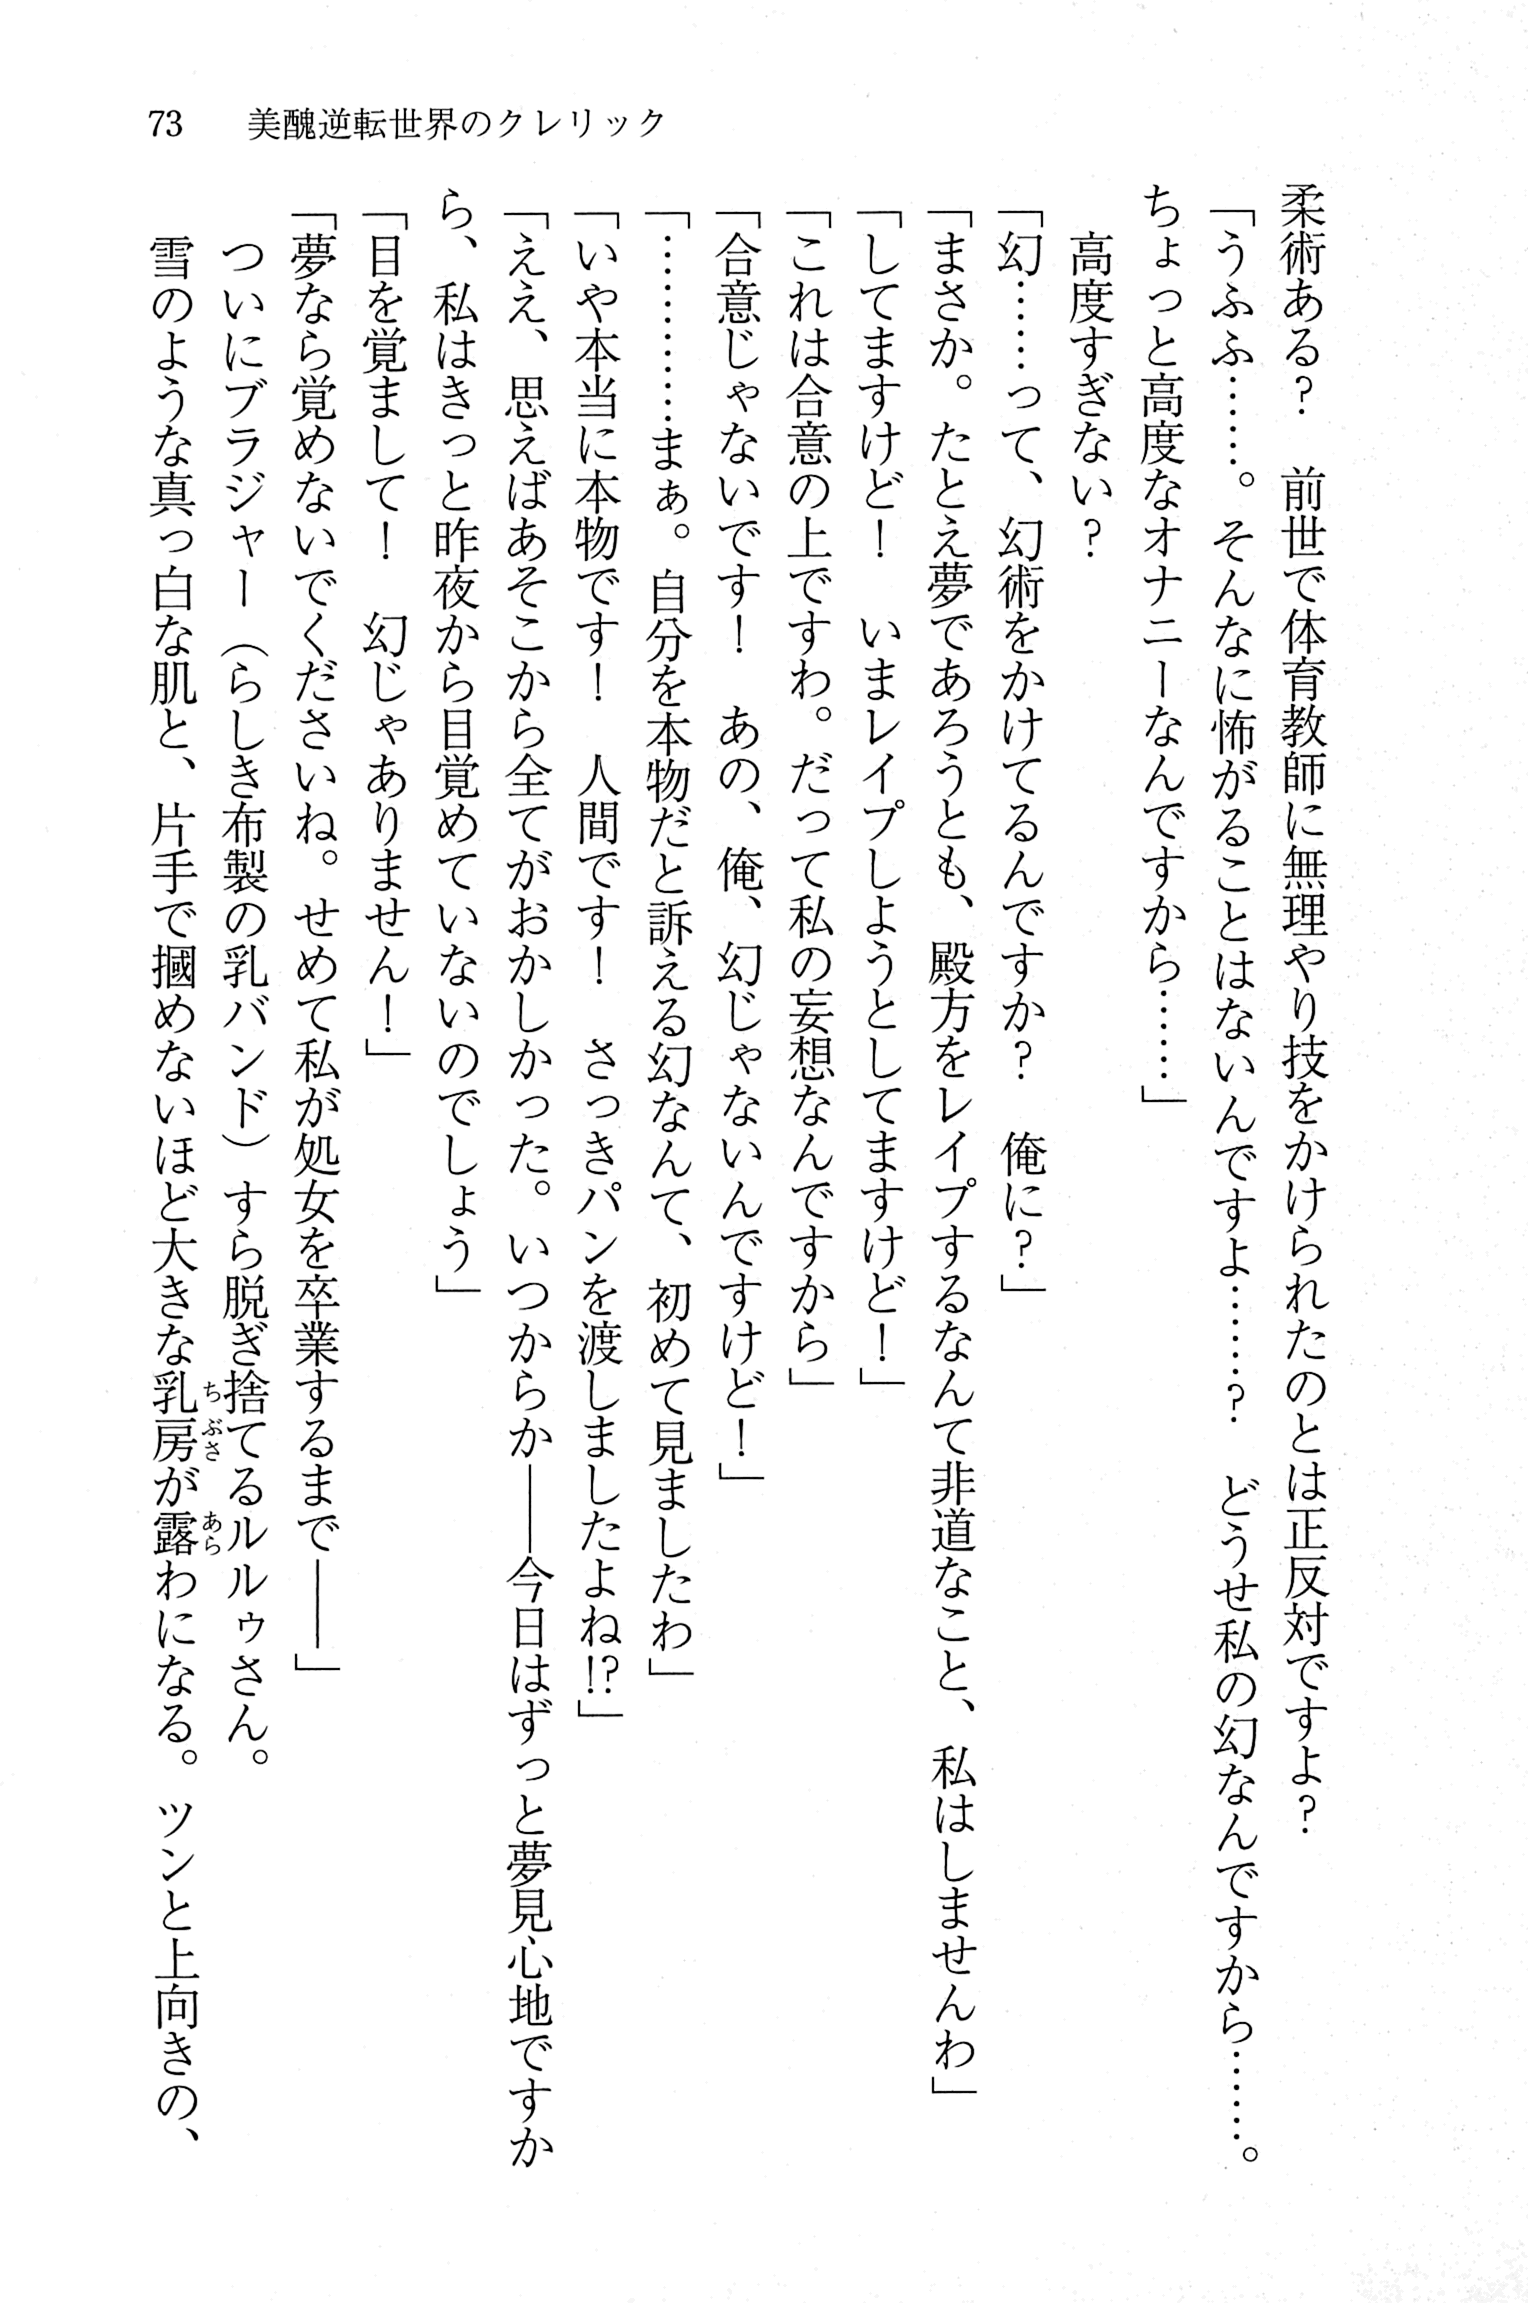 73　美醜逆転世界のクレリック
柔術ある？　前世で体育教師に無理やり技をかけられたのとは正反対ですよ？
「うふふ……。そんなに怖がることはないんですよ……？　どうせ私の幻なんですから……。
ちょっと高度なオナニーなんですから……」
　高度すぎない？
「幻……って、幻術をかけてるんですか？　俺に？」
「まさか。たとえ夢であろうとも、殿方をレイプするなんて非道なこと、私はしませんわ」
「してますけど！　いまレイプしようとしてますけど！」
「これは合意の上ですわ。だって私の妄想なんですから」
「合意じゃないです！　あの、俺、幻じゃないんですけど！」
「…………まぁ。自分を本物だと訴える幻なんて、初めて見ましたわ」
「いや本当に本物です！　人間です！　さっきパンを渡しましたよね!?」
「ええ、思えばあそこから全てがおかしかった。いつからか――今日はずっと夢見心地ですか
ら、私はきっと昨夜から目覚めていないのでしょう」
「目を覚まして！　幻じゃありません！」
「夢なら覚めないでくださいね。せめて私が処女を卒業するまで――」
　ついにブラジャー（らしき布製の乳バンド）すら脱ぎ捨てるルルゥさん。
　雪のような真っ白な肌と、片手で摑めないほど大きな乳房（ちぶさ）が露（あら）わになる。ツンと上向きの、